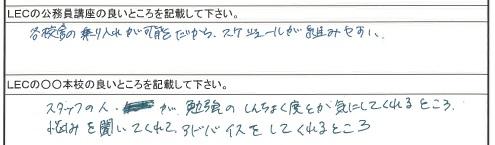 LECの公務員講座の良いところを記載して下さい。
各校舎の乗り入れが可能だから、スケジュールが組みやすい、
LECの〇〇本校の良いところを記載して下さい。
スタッフの人が、勉強のしんちょく度とか気にしてくれるところ、
悩みを聞いてくれて、アドバイスをしてくれるところ